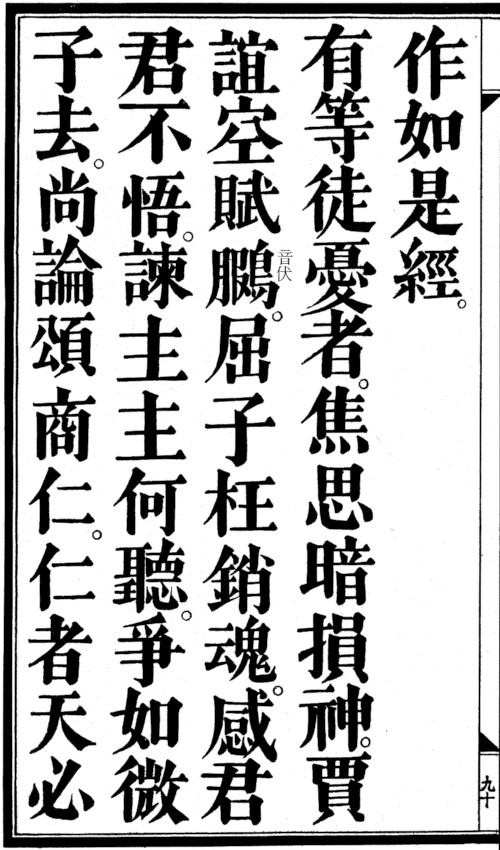 作如是經。
有等徒憂者。焦思暗損神。賈
誼空賦鵬音伏。屈子枉銷魂。感君
君不悟。諫主主何聽。爭如微
子去。尚論頌商仁。仁者天必
九十